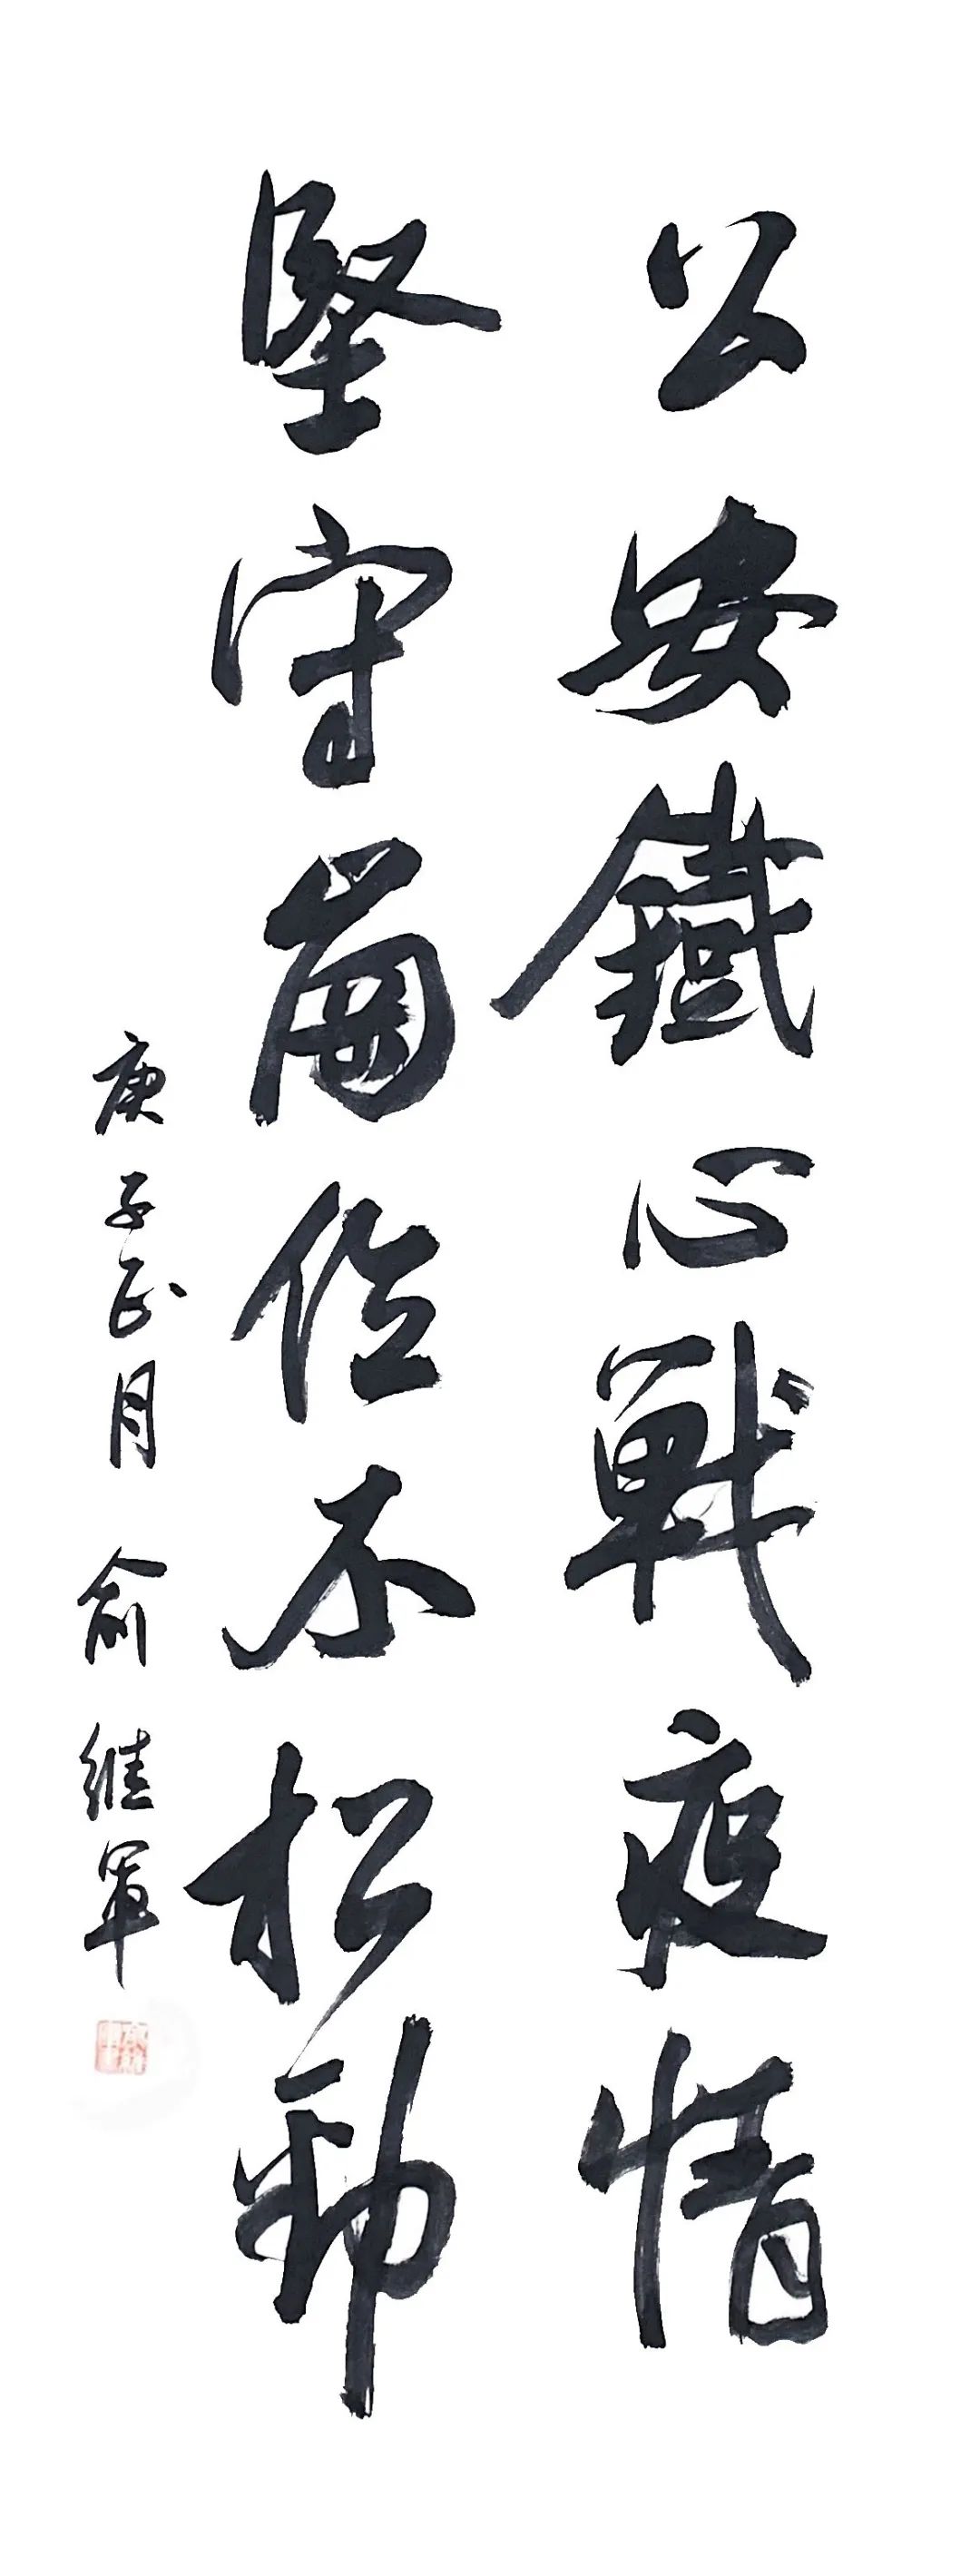 公安鐵心戰疫情
堅守崗位不松勁
庚子正月 俞继軍